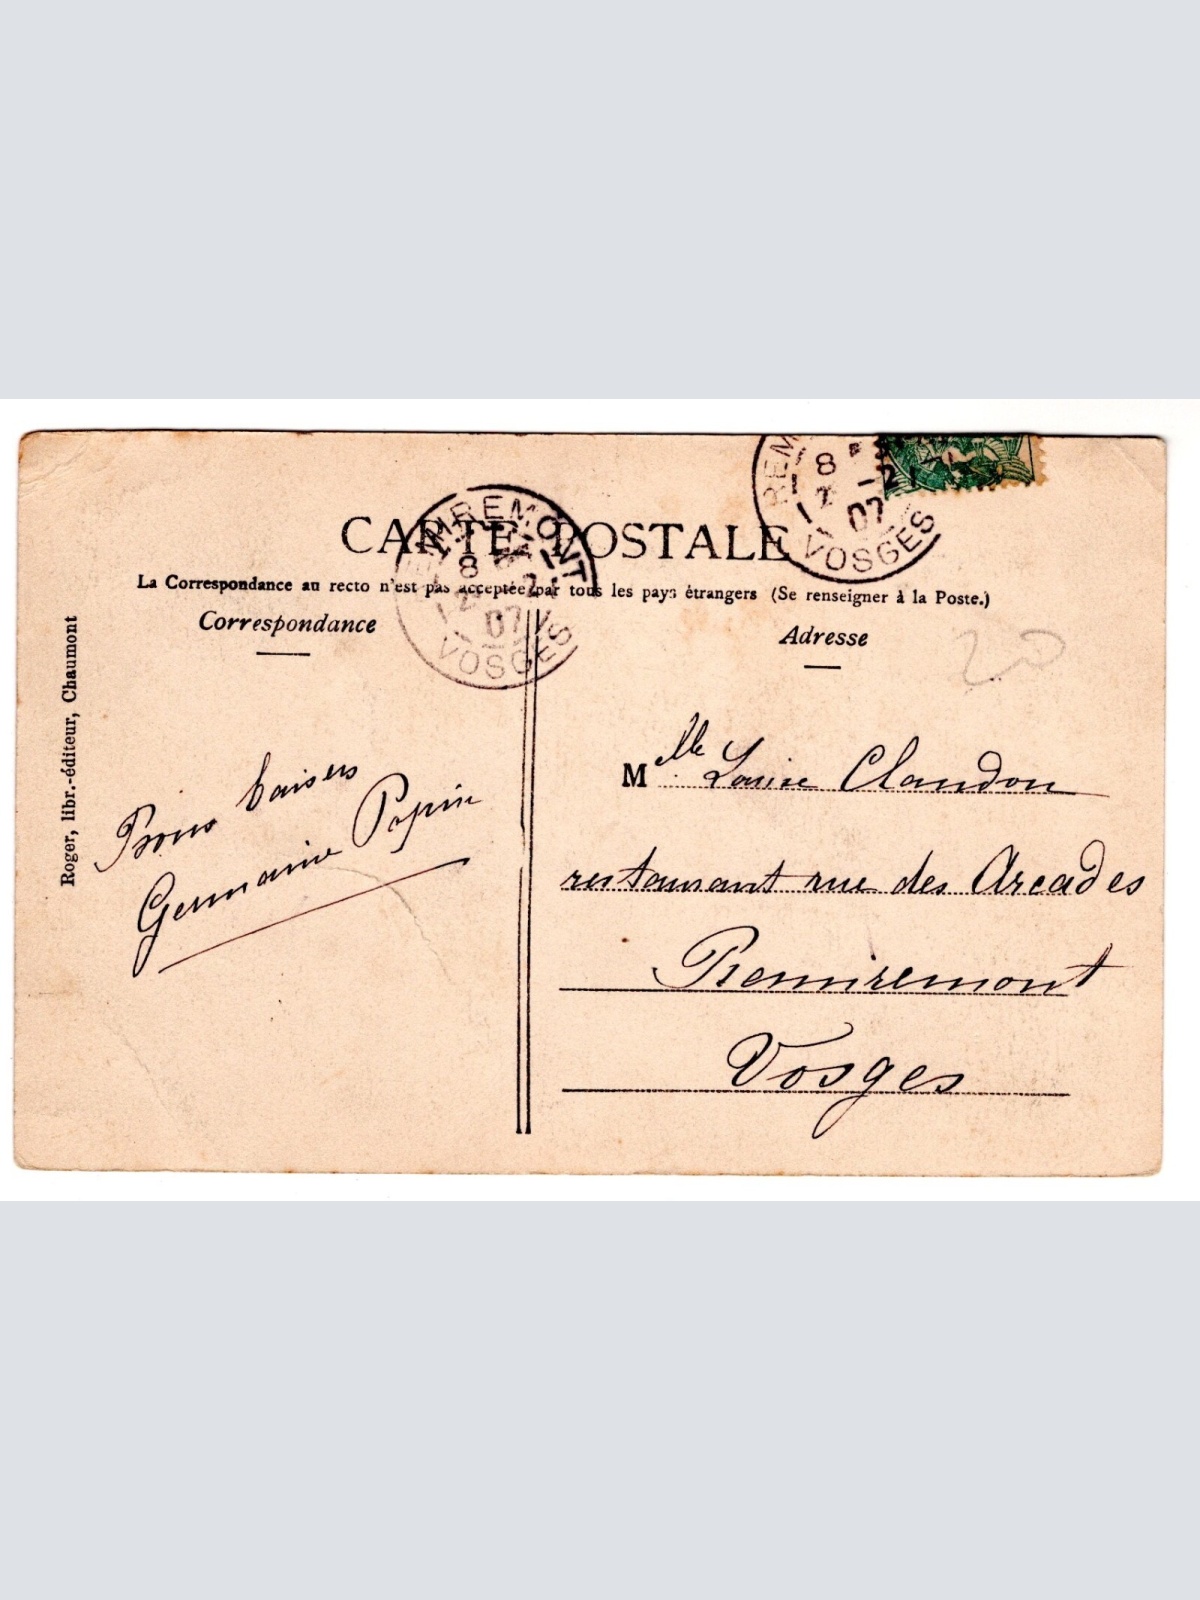 CARTE POSTALE
La Correspondance au recto n'est pas acceptée par tous les pays étrangers (Se renseigner à la Poste.)
Correspondance
Adresse
REMIREMONT
8
07
VOSGES
REM
8
21
07
VOSGES
20
Roger, libr.-éditeur, Chaumont
Bons baisers
Germaine Papin
Melle Louise Claudon
restaurant rue des Arcades
Remiremont
Vosges